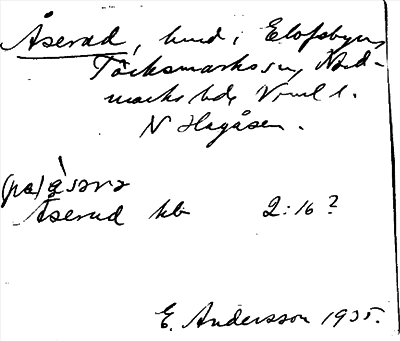 Åserud, hmd i Elofsbyn,
Töcksmarks sn, Nord-
marks hd, Vrml l.
N Hagåsen.
(pa)
Åserud kb 2:16?
E. Andersson 1935.